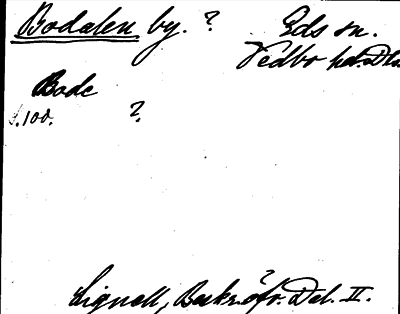 Bodalen by. ? Eds sn.
Vedbo hd. Dls.
Bode
s.100. ?
Lignell, Beskr. öfv. Dal. II.